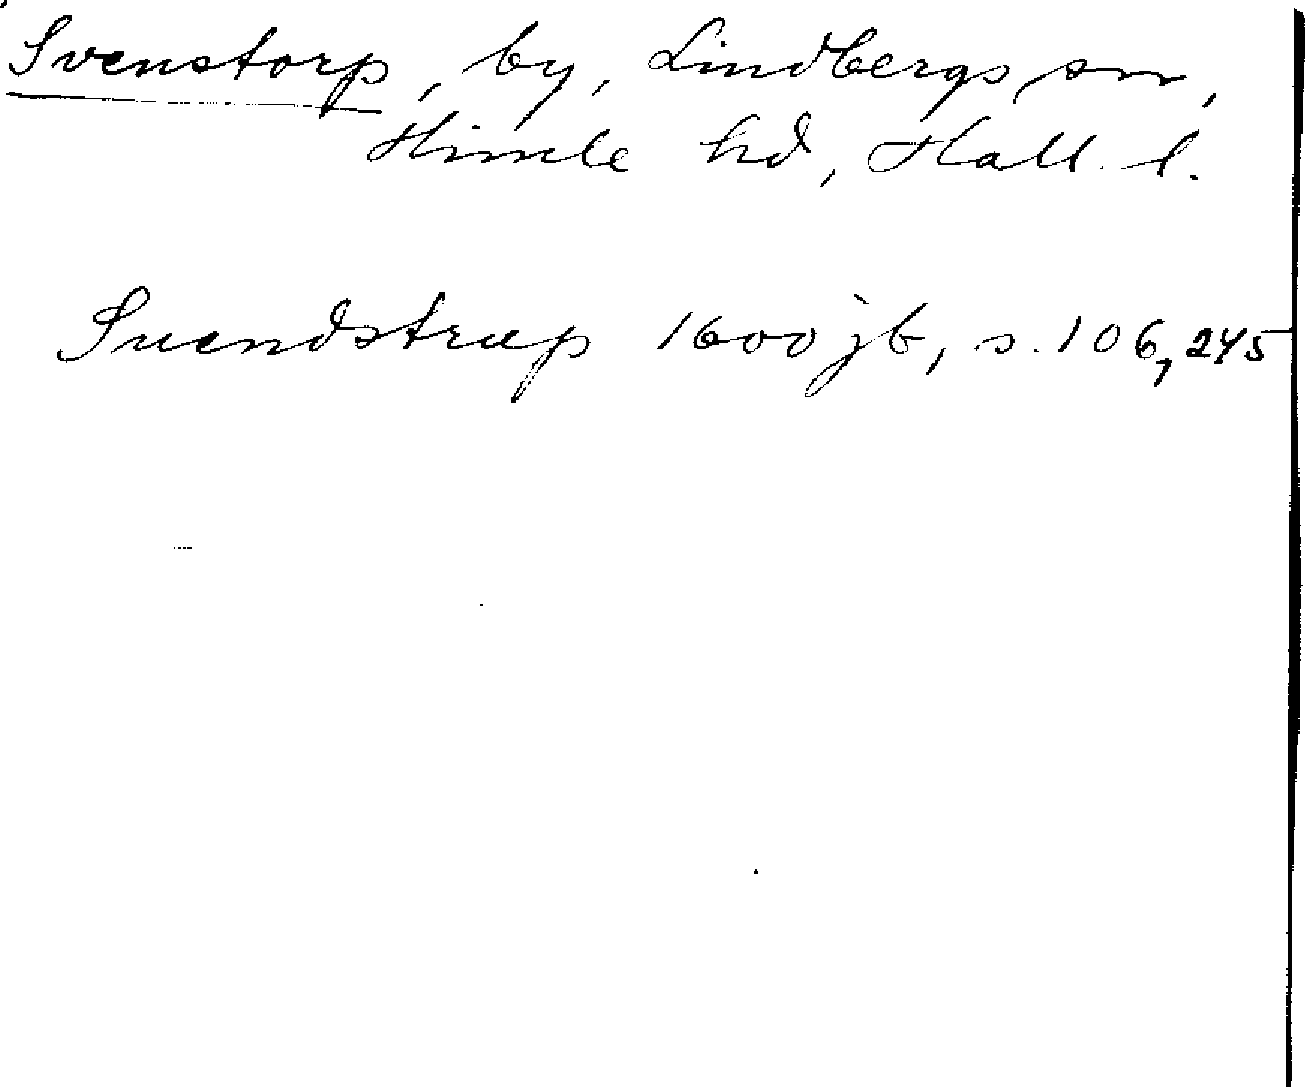 Svenstorp, by, Lindbergs sn,
Himle hd, Hall. l.
Suendstrup 1600 jb, s. 106, 245